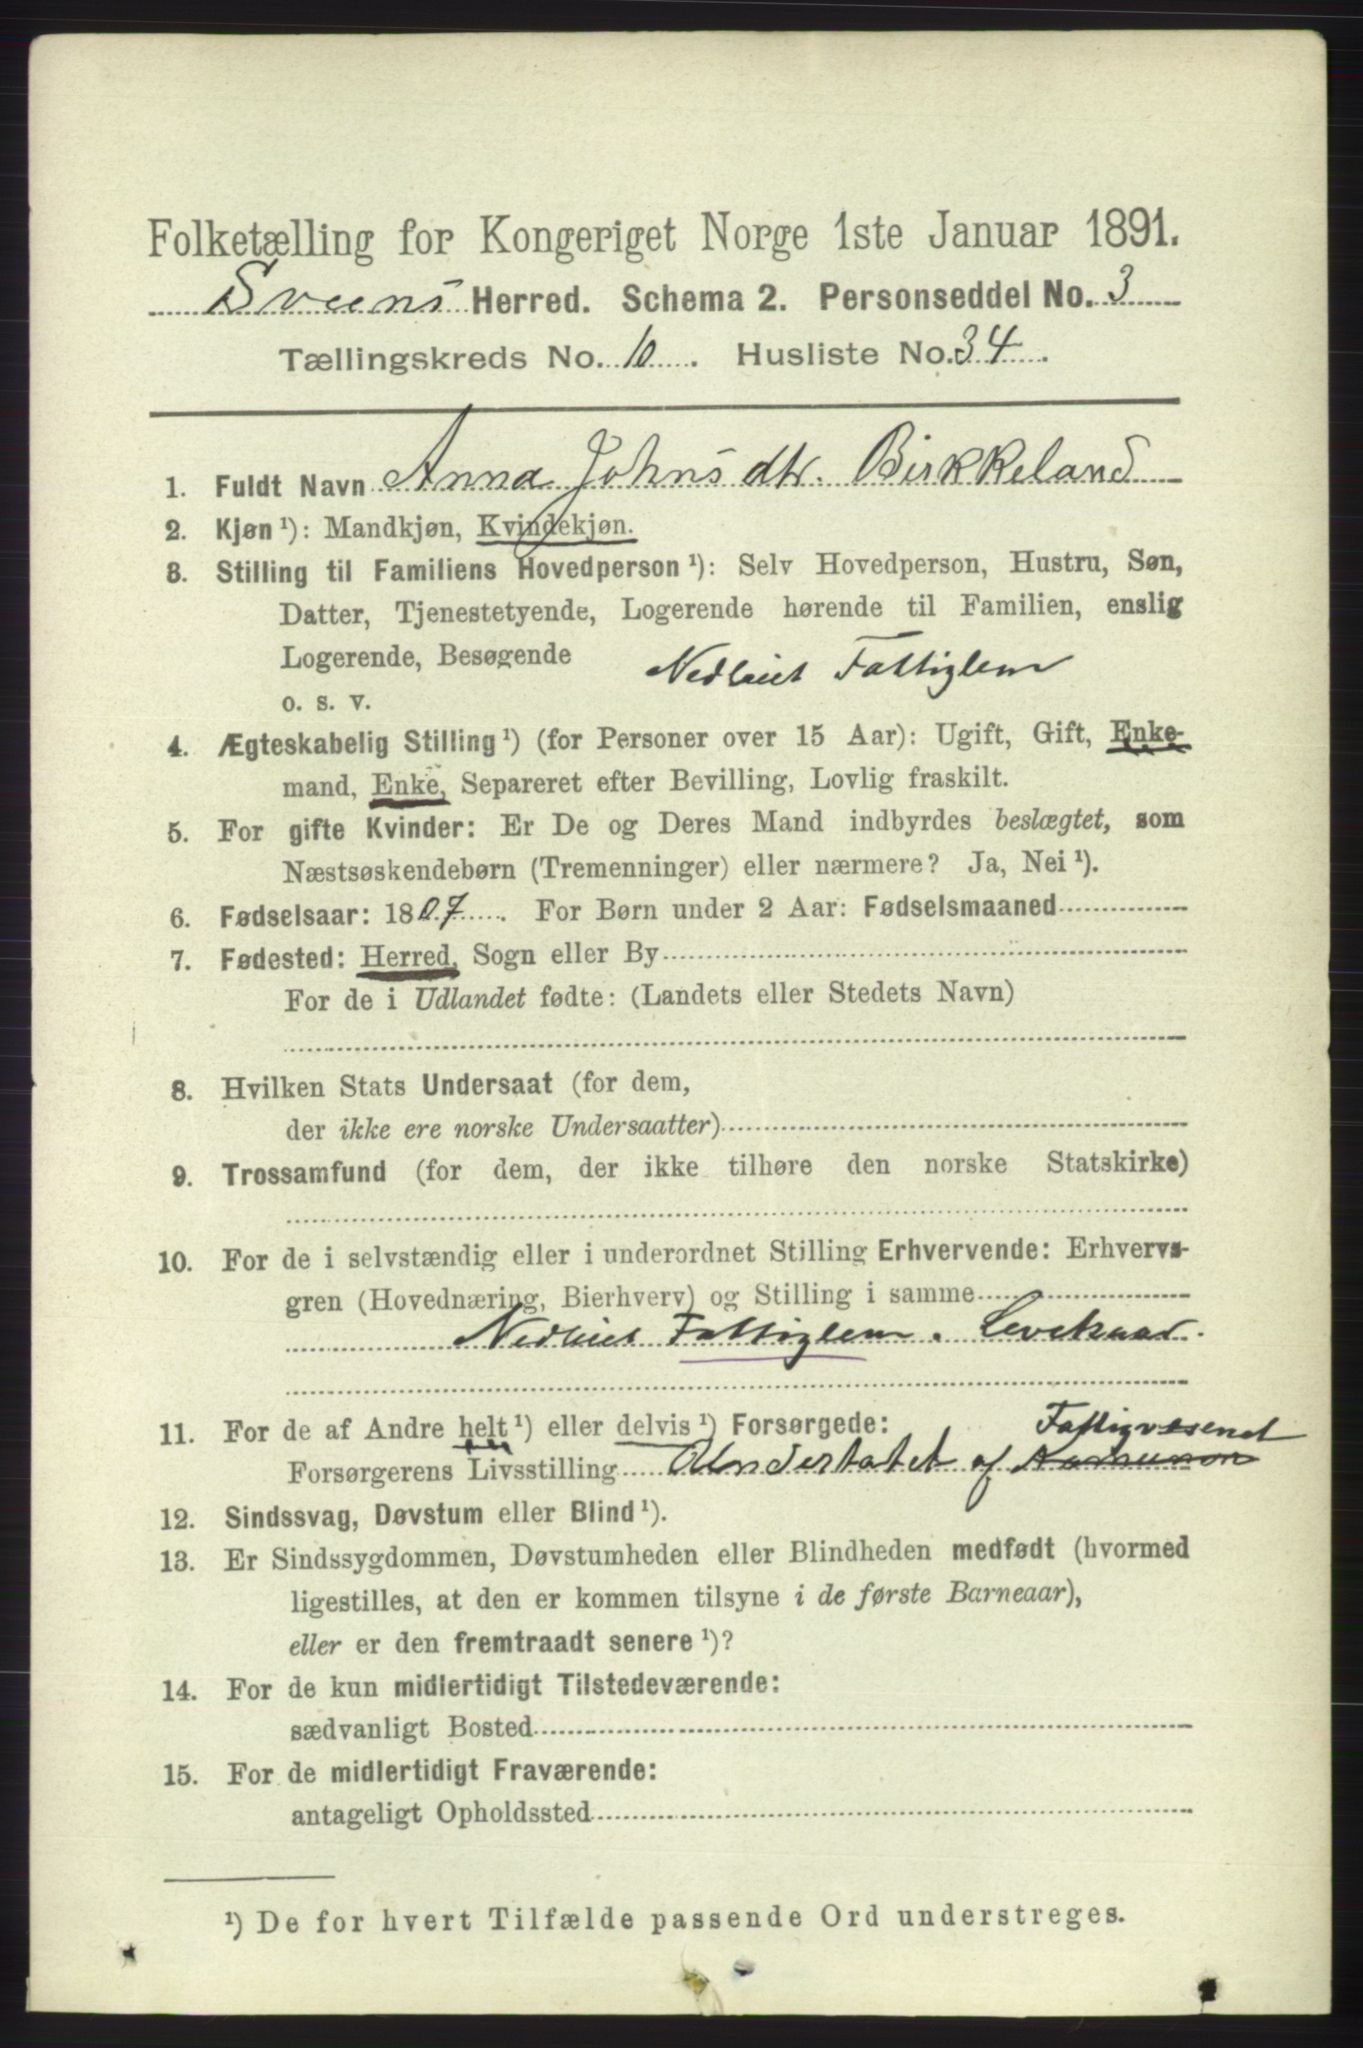 Folketælling for Kongeriget Norge 1ste Januar 1891.
Sveens Herred. Schema 2. Personseddel No. 3
Tællingskreds No. 10. Husliste No. 34.
1. Fuldt Navn Anna Johnsdtr. Birkkeland
2. Kjøn ¹): Mandkjøn, Kvindekjøn.
3. Stilling til Familiens Hovedperson ¹): Selv Hovedperson, Hustru, Søn,
Datter, Tjenestetyende, Logerende hørende til Familien, enslig
Logerende, Besøgende Nedlaiet Fattiglem
o. s. v.
4. Ægteskabelig Stilling ¹) (for Personer over 15 Aar): Ugift, Gift, Enke-
mand, Enke, Separeret efter Bevilling, Lovlig fraskilt.
5. For gifte Kvinder: Er De og Deres Mand indbyrdes beslægtet, som
Næstsøskendebørn (Tremenninger) eller nærmere? Ja, Nei ¹).
6. Fødselsaar: 1807. For Børn under 2 Aar: Fødselsmaaned
7. Fødested: Herred, Sogn eller By
For de i Udlandet fødte: (Landets eller Stedets Navn)
8. Hvilken Stats Undersaat (for dem,
der ikke ere norske Undersaatter)
9. Trossamfund (for dem, der ikke tilhøre den norske Statskirke)
10. For de i selvstændig eller i underordnet Stilling Erhvervende: Erhvervs-
gren (Hovednæring, Bierhverv) og Stilling i samme
Nedlaiet Fattiglem. Levekaar.
11. For de af Andre helt ¹) eller delvis ¹) Forsørgede: Fattigvesenet
Forsørgerens Livsstilling Understøtet af Kommunen
12. Sindssvag, Døvstum eller Blind ¹).
13. Er Sindssygdommen, Døvstumheden eller Blindheden medfødt (hvormed
ligestilles, at den er kommen tilsyne i de første Barneaar),
eller er den fremtraadt senere ¹)?
14. For de kun midlertidigt Tilstedeværende:
sædvanligt Bosted
15. For de midlertidigt Fraværende:
antageligt Opholdssted
¹) De for hvert Tilfælde passende Ord understreges.